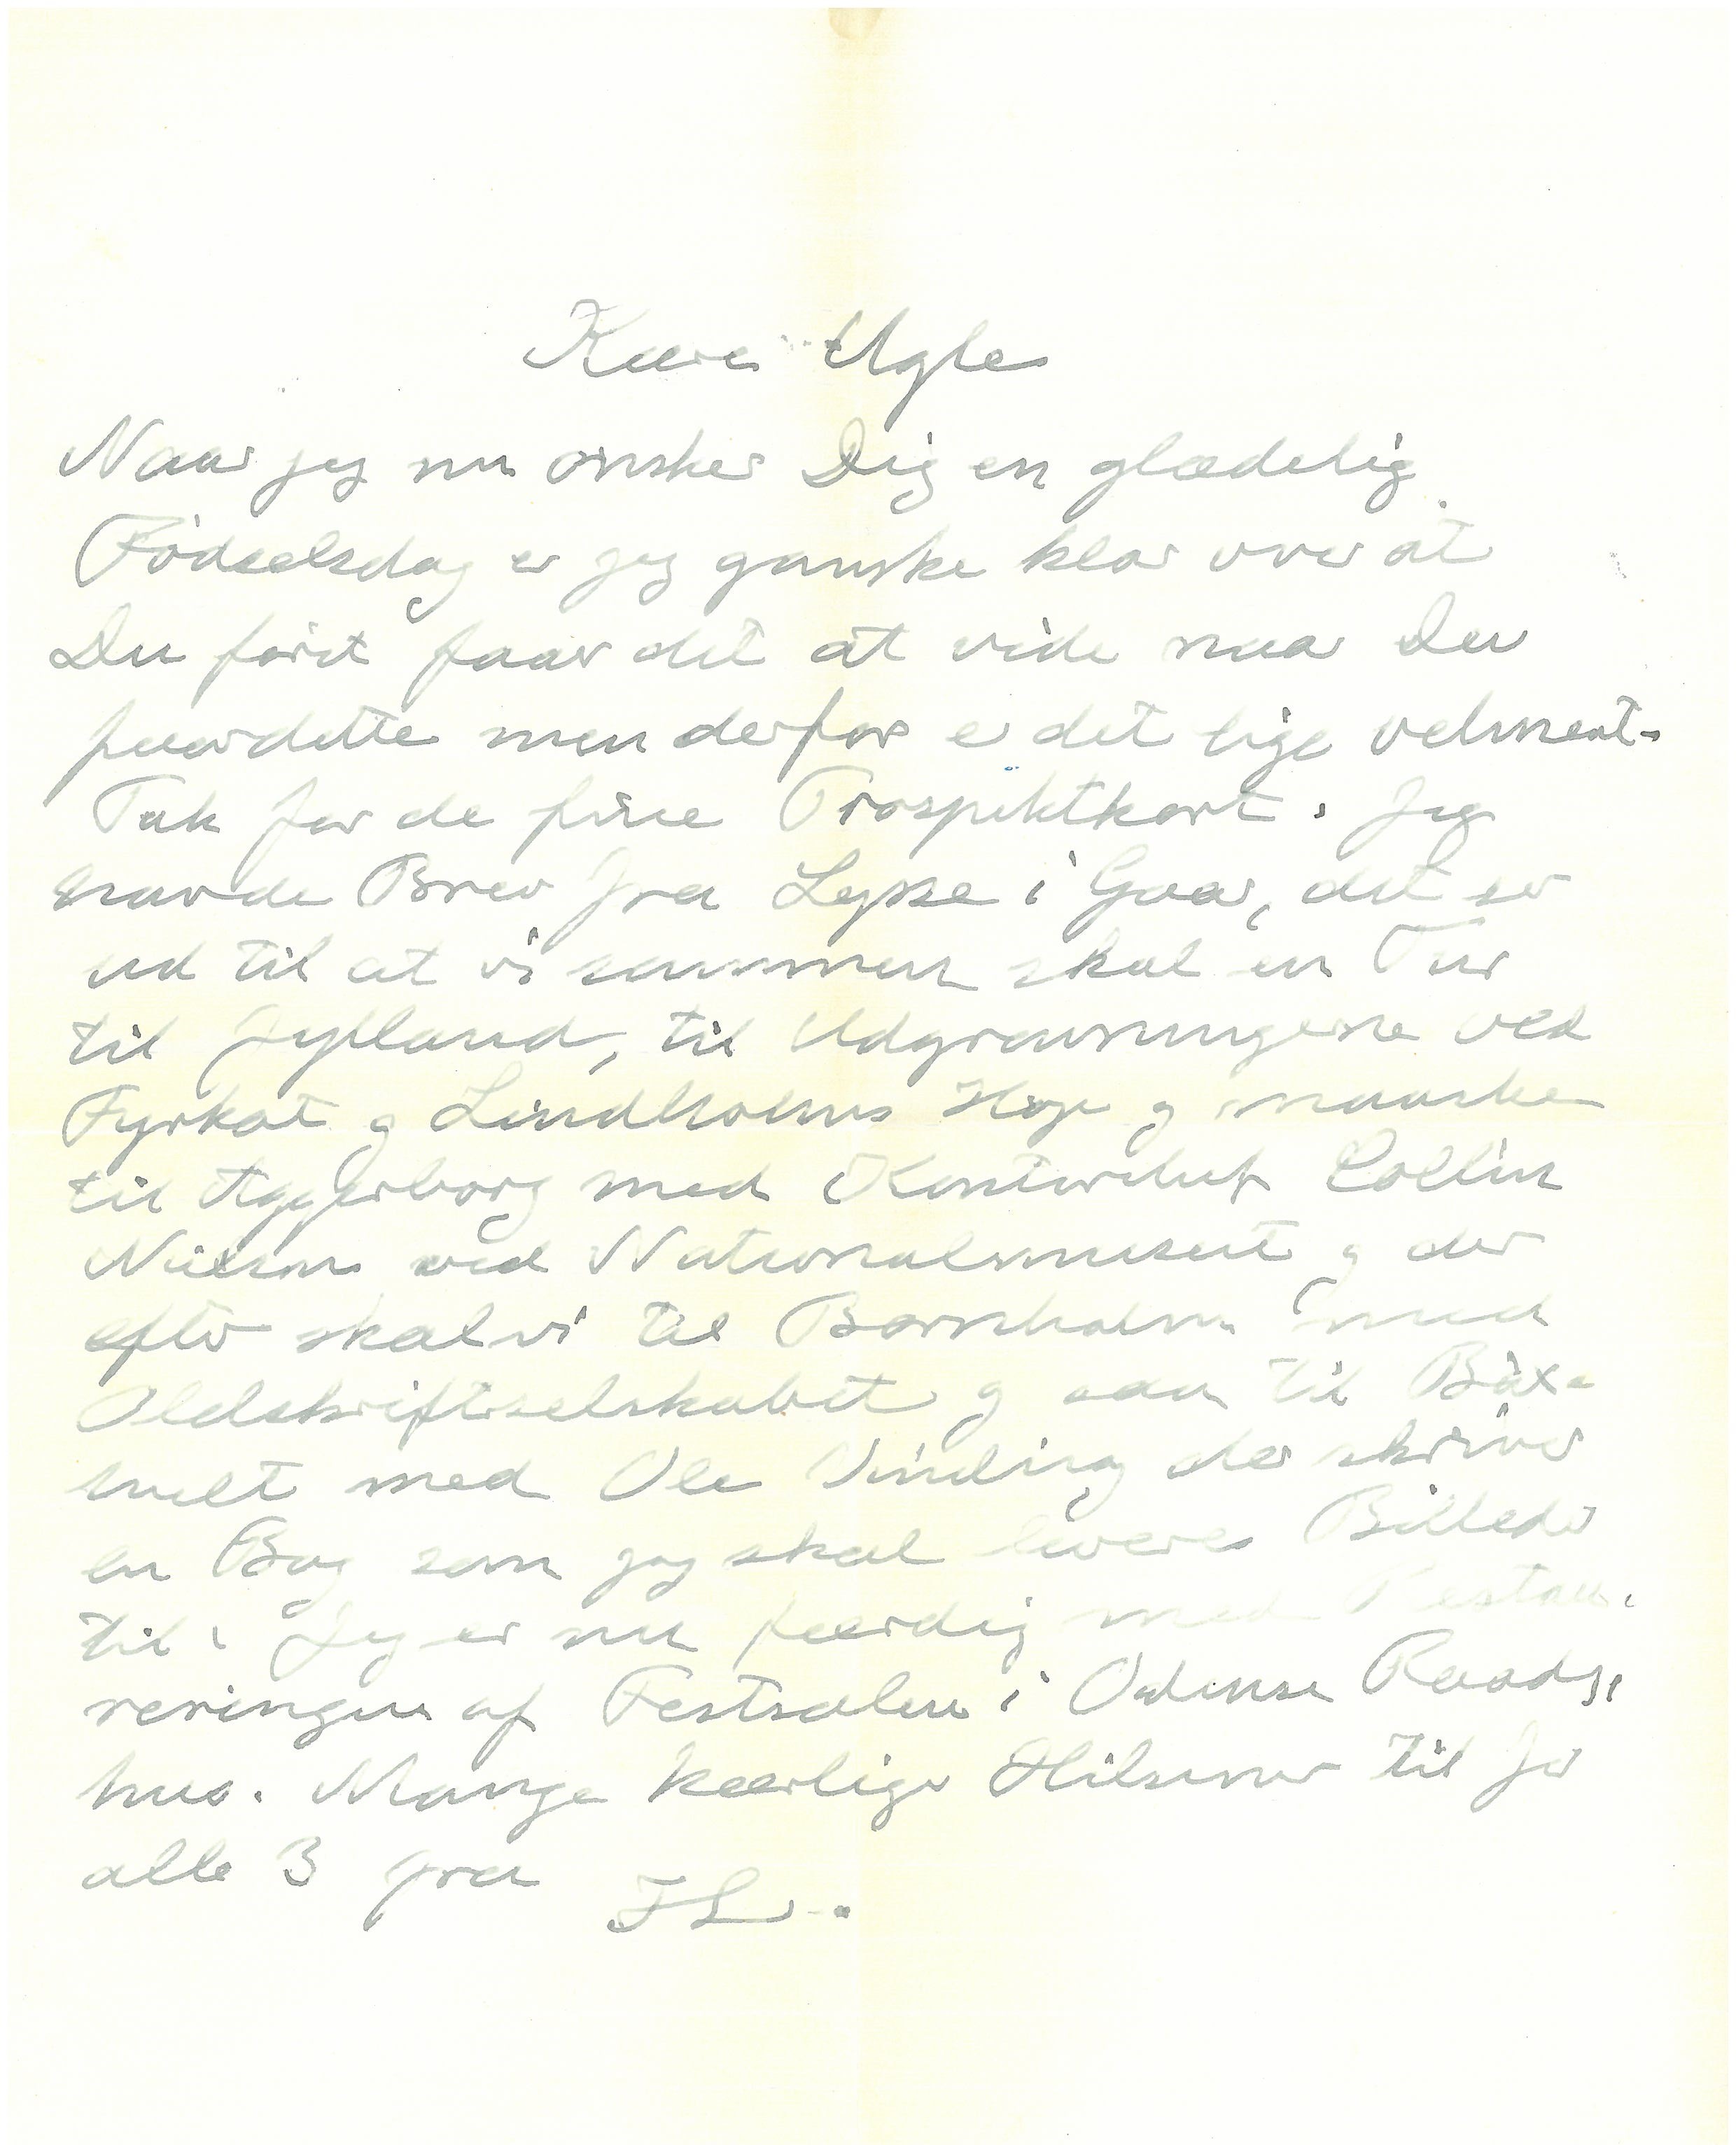 Kære Ugle
Naar jeg nu ønsker Dig en glædelig
Fødselsdag er jeg ganske klar over at
Du først faar det at vide naar Du
faar dette men derfor er det lige velment.
Tak for de fine Prospektkort. Jeg
havde Brev fra Lysse i Gaar, det ser
ud til at vi sammen skal en Tur
til Jylland, til Udgravningerne ved
Fyrkat og Lindholms Høje og maaske
til Aggersborg med Kontorchef Collin
Nielsen ved Nationalmuseet og der
efter skal vi til Bornholm med
Oldskriftselskabet og saa til Båx-
hult med Ole Vinding der skriver
en Bog som jeg skal levere Billeder
til. Jeg er nu færdig med Restau-
reringen af Festsalen i Odense Raad-
hus. Mange kærlige Hilsener til Jer
alle 3 fra
JL.